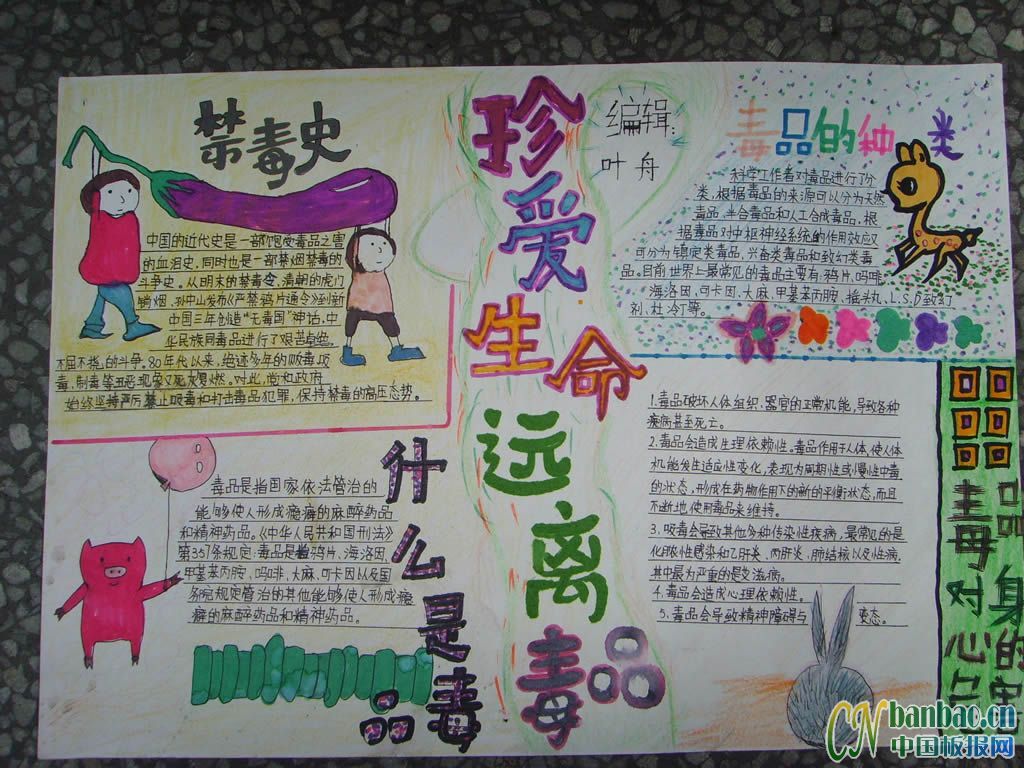 禁毒史
中国的近代史是一部饱受毒品之害
的血泪史,同时也是一部禁烟禁毒的
斗争史。从明末的禁毒令,清朝的虎门
销烟,孙中山发布《严禁鸦片通令》到新
中国三年创造“无毒国”神话,中
华民族同毒品进行了艰苦卓绝,
不屈不挠的斗争。80年代以来,绝迹多年的吸毒、贩
毒、制毒等丑恶现象又死灰复燃。对此,党和政府
始终坚持严厉禁止吸毒和打击毒品犯罪,保持禁毒的高压态势。
珍爱生命
远离毒品
编辑:
叶舟
毒品的种类
科学工作者对毒品进行了分
类,根据毒品的来源可以分为天然
毒品,半合毒品和人工合成毒品,根
据毒品对中枢神经系统的作用效应
可分为镇定类毒品,兴奋类毒品和致幻类毒
品。目前世界上最常见的毒品主要有:鸦片,吗啡
海洛因,可卡因,大麻,甲基苯丙胺,摇头丸、L.S.D致幻
剂、杜冷丁等。
什么是毒品
毒品是指国家依法管治的
能够使人形成瘾癖的麻醉药品
和精神药品。《中华人民共和国刑法》
第357条规定:毒品是指鸦片、海洛因
甲基苯丙胺、吗啡、大麻、可卡因以及国
务院规定管治的其他能够使人形成瘾
癖的麻醉药品和精神药品。
1.毒品破坏人体组织、器官的正常机能,导致各种
疾病甚至死亡。
2.毒品会造成生理依赖性。毒品作用于人体,使人体
机能发生适应性变化,表现为周期性或慢性中毒
的状态,形成在药物作用下的新的平衡状态,而且
不断地使用毒品来维持。
3.吸毒会导致其他多种传染性疾病,最常见的是
化脓性感染和乙肝炎、丙肝炎,肺结核以及性病,
其中最为严重的是艾滋病。
4.毒品会造成心理依赖性。
5.毒品会导致精神障碍与变态。
毒品对身心的
CNbanbao.cn
中国板报网